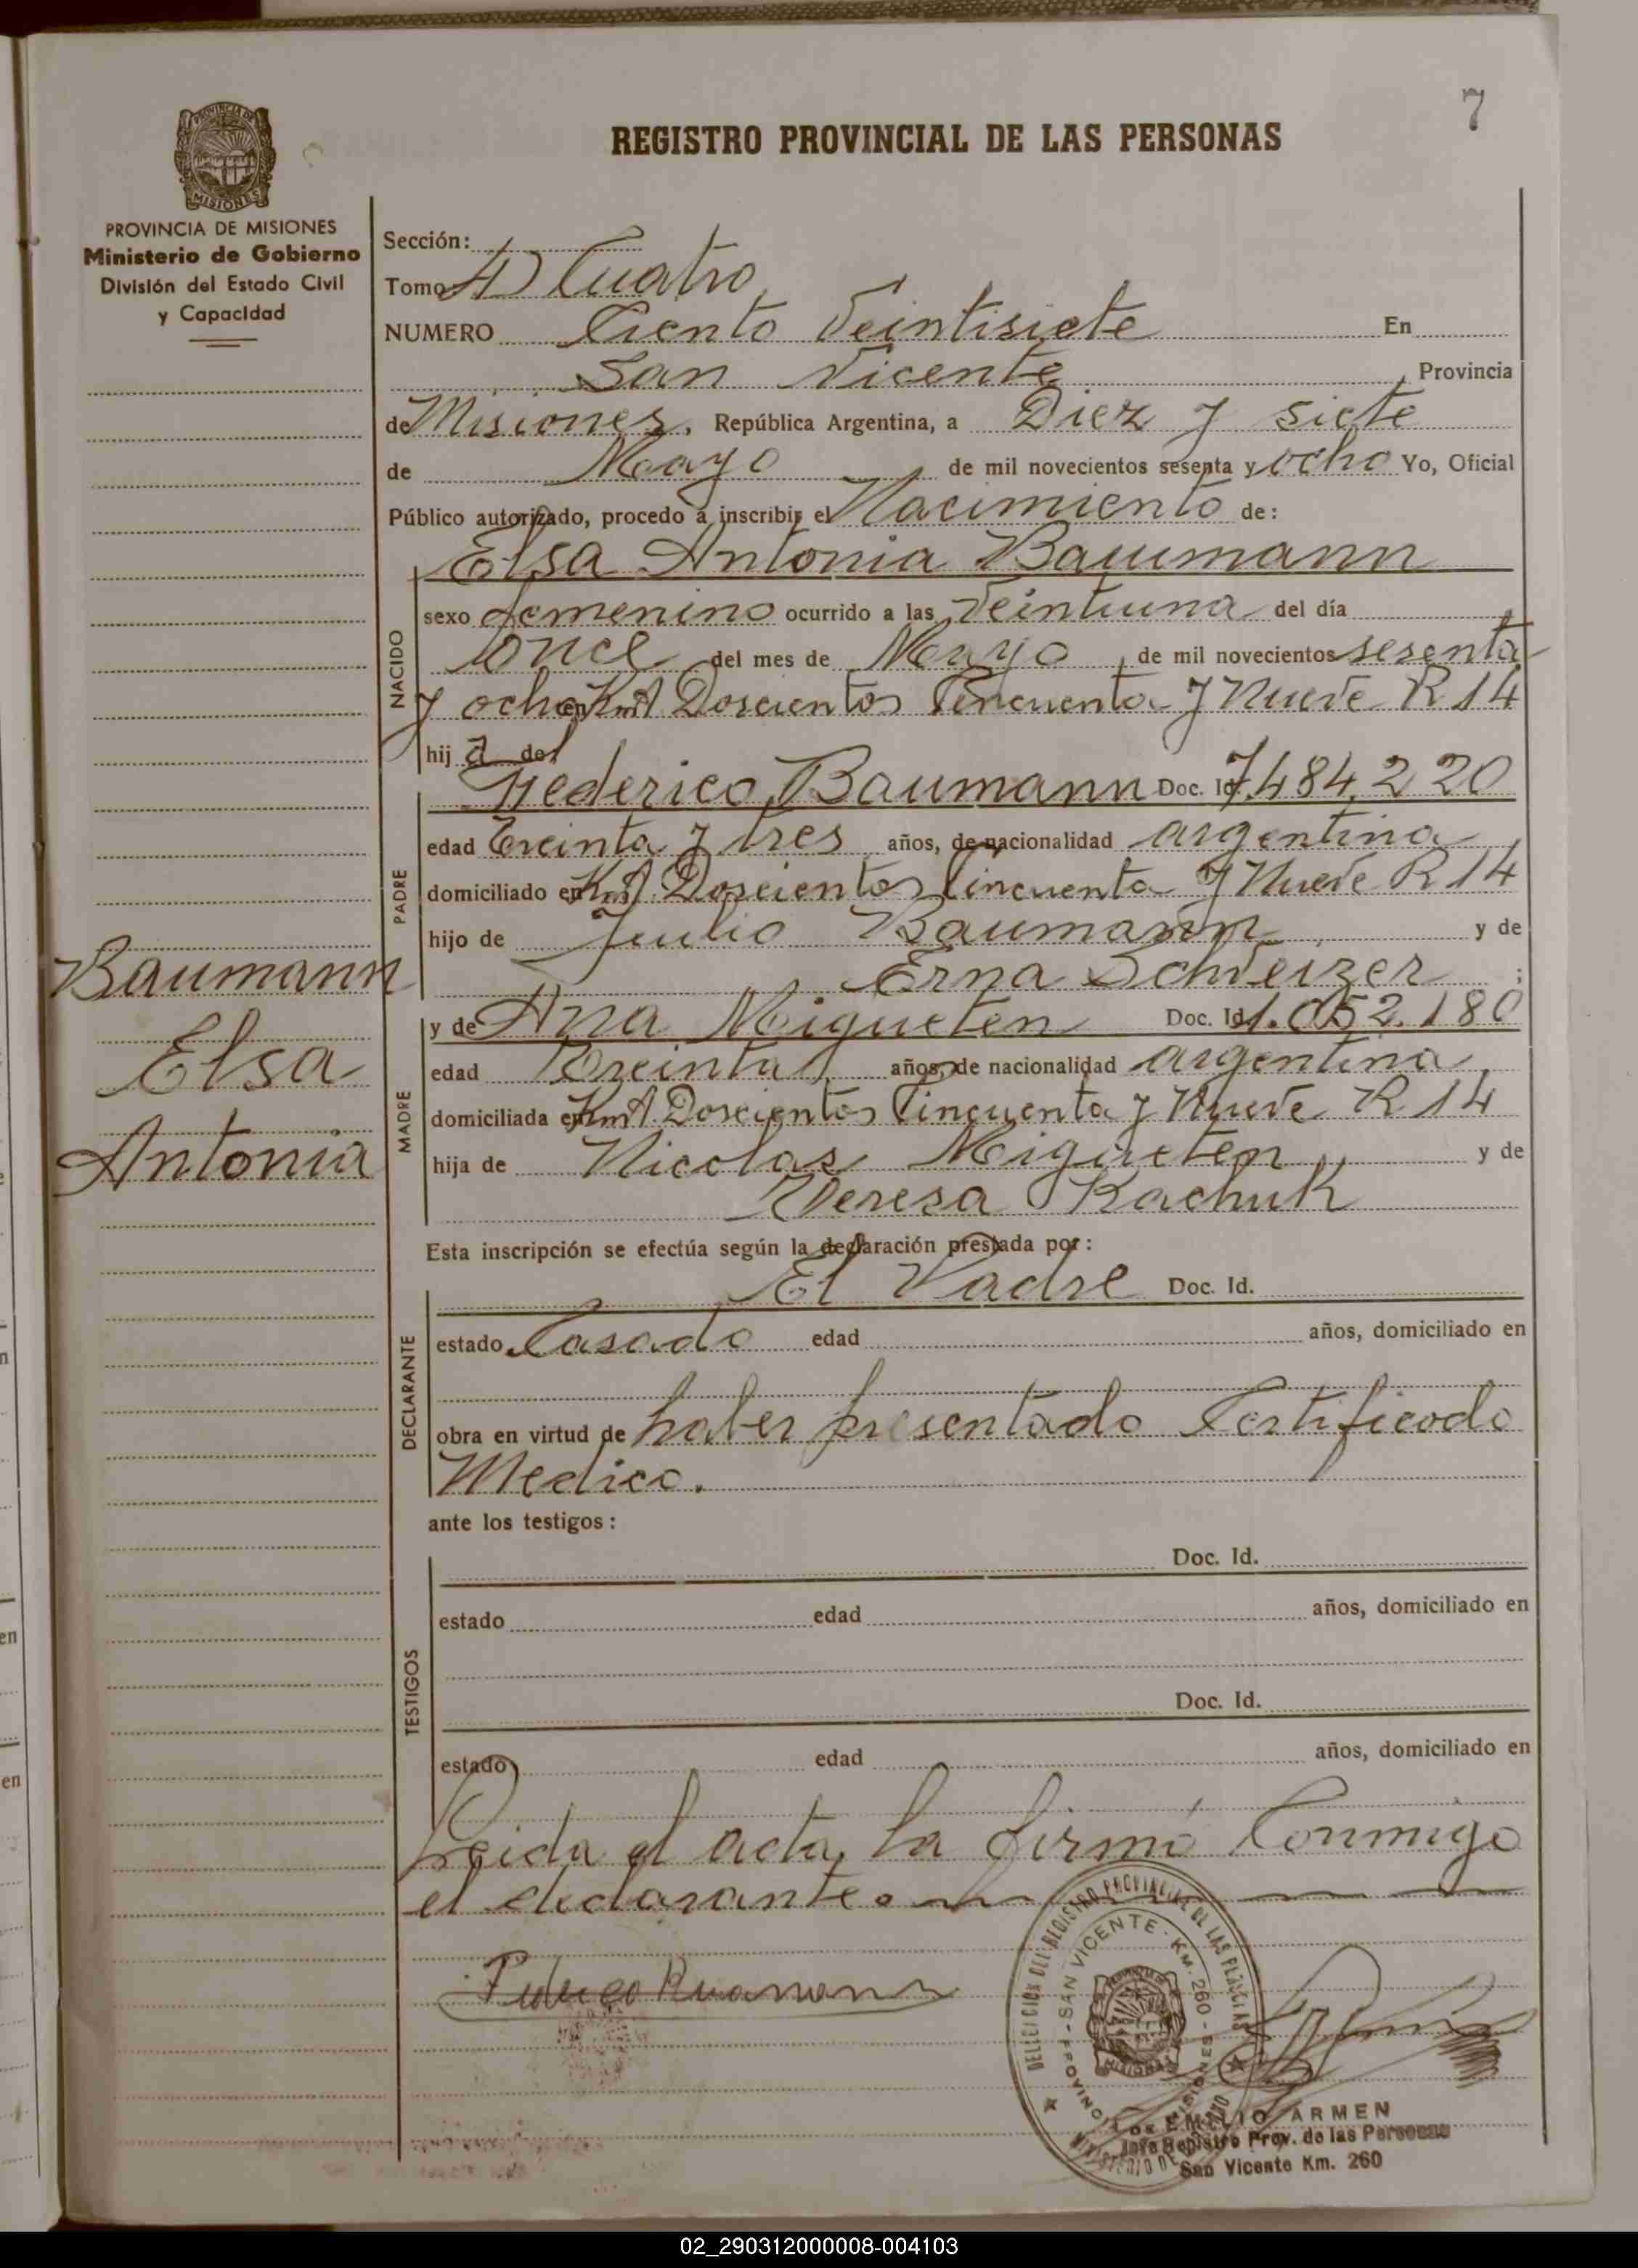 7
REGISTRO PROVINCIAL DE LAS PERSONAS
PROVINCIA DE MISIONES
Ministerio de Gobierno
División del Estado Civil
y Capacidad
Sección:
Tomo 4) Cuatro
NUMERO Ciento Veintisiete En
San Vicente, Provincia
de Misiones, República Argentina, a Diez y siete
de Mayo de mil novecientos sesenta y ocho Yo, Oficial
Público autorizado, procedo a inscribir el Nacimiento de:
Elsa Antonia Baumann
NACIDO
sexo femenino ocurrido a las Veintiuna del día
once del mes de Mayo, de mil novecientos sesenta
y ocho en Kmt Doscientos Cincuenta y Nueve R 14
hij a de
PADRE
Federico Baumann Doc. Id. 7.484.220
edad Treinta y tres años, de nacionalidad argentina
domiciliado en Kmt. Doscientos Cincuenta y Nueve R 14
hijo de Julio Baumann y de
Erna Schveizer ;
MADRE
y de Ana Migueten Doc. Id. 1.052.180
edad Treinta años, de nacionalidad argentina
domiciliada en Kmt. Doscientos Cincuenta y Nueve R 14
hija de Nicolas Migueten y de
Teresa Kachuk
Baumann
Elsa
Antonia
Esta inscripción se efectúa según la declaración prestada por:
DECLARANTE
El Padre Doc. Id.
estado Casado edad años, domiciliado en
obra en virtud de haber presentado Certificado
Medico.
ante los testigos:
TESTIGOS
Doc. Id.
estado edad años, domiciliado en
Doc. Id.
estado edad años, domiciliado en
Leida el acta, la firmó Conmigo
el declarante.
DELEGACION DEL REGISTRO PROVINCIAL DE LAS PERSONAS
SAN VICENTE - KM. 260 - MISIONES
EMILIO ARMEN
Jefe Registro Prov. de las Personas
San Vicente Km. 260
02_290312000008-004103